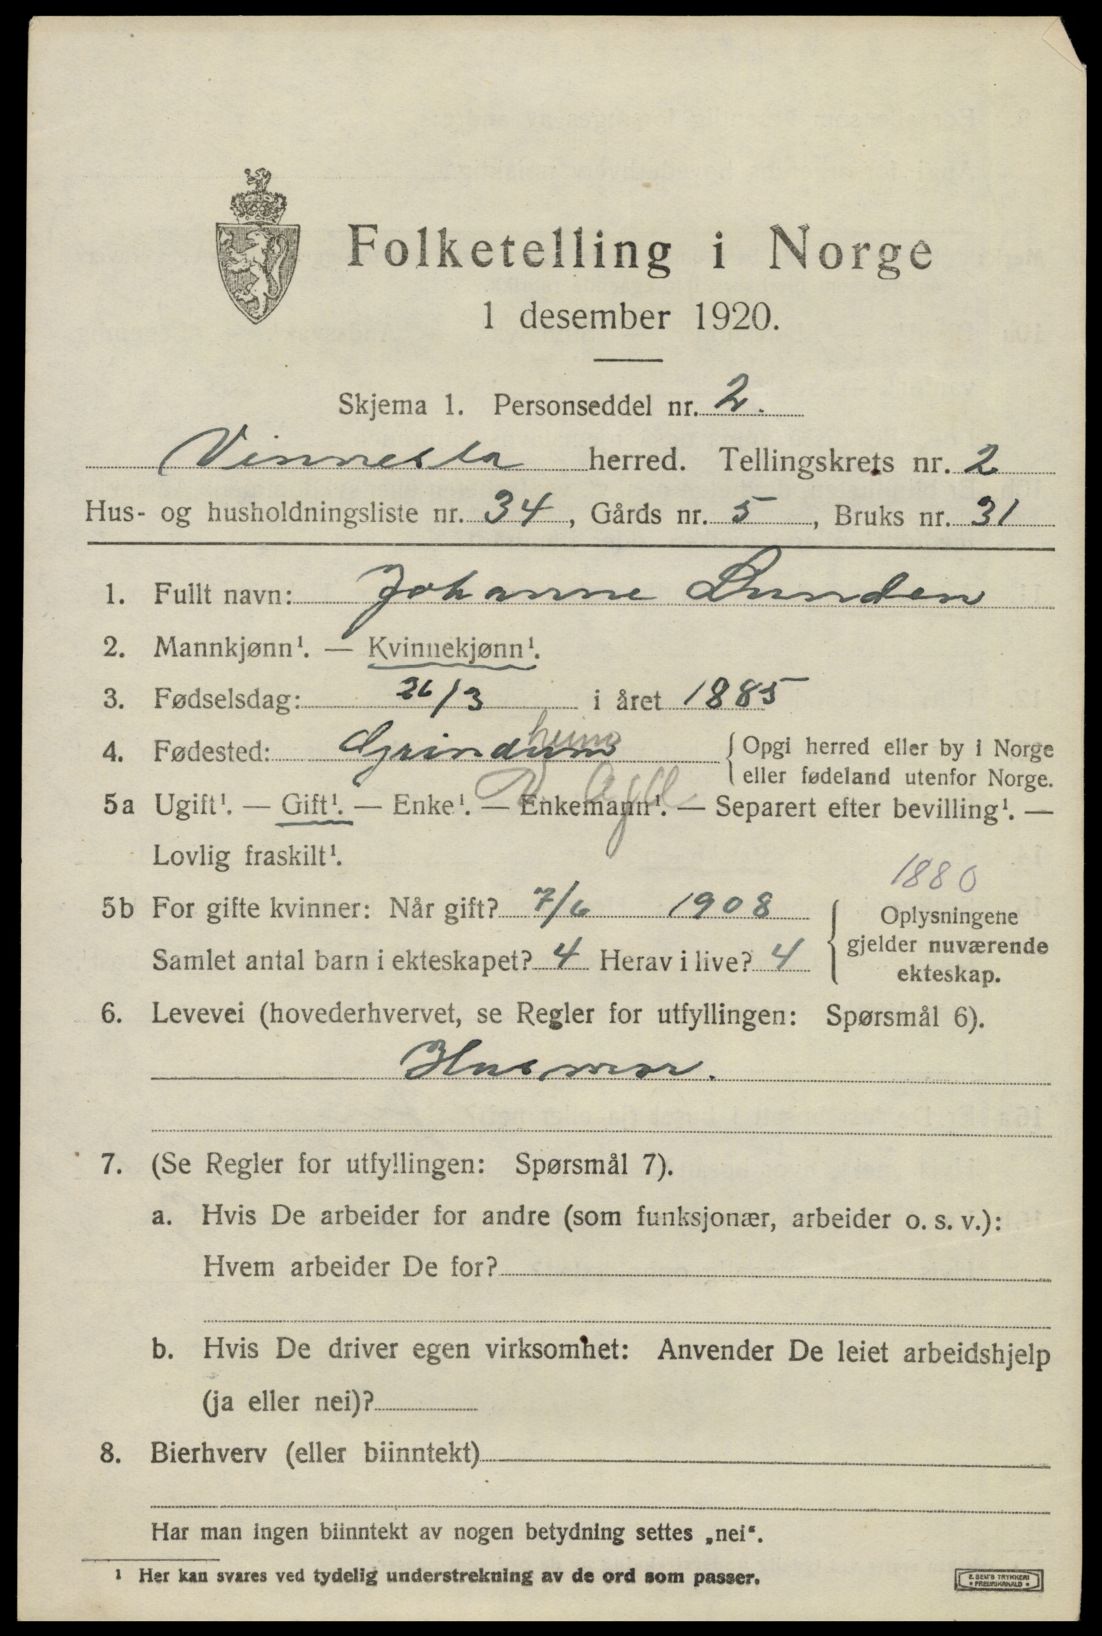 Folketelling i Norge
1 desember 1920.
Skjema 1. Personseddel nr. 2.
Vennesla herred. Tellingskrets nr. 2
Hus- og husholdningsliste nr. 34, Gårds nr. 5, Bruks nr. 31
1. Fullt navn: Johanne Lunden
2. Mannkjønn¹. — Kvinnekjønn¹.
3. Fødselsdag: 26/3 i året 1885
heim
4. Fødested: Grindum { Opgi herred eller by i Norge
eller fødeland utenfor Norge.
V. Agd.
5a Ugift¹. — Gift¹. — Enke¹. — Enkemann¹. — Separert efter bevilling¹. —
Lovlig fraskilt¹.
1880
5b For gifte kvinner: Når gift? 7/6 1908 { Oplysningene
gjelder nuværende
Samlet antal barn i ekteskapet? 4 Herav i live? 4
ekteskap.
6. Levevei (hovederhvervet, se Regler for utfyllingen: Spørsmål 6).
Husmor.
7. (Se Regler for utfyllingen: Spørsmål 7).
a. Hvis De arbeider for andre (som funksjonær, arbeider o. s. v.):
Hvem arbeider De for?
b. Hvis De driver egen virksomhet: Anvender De leiet arbeidshjelp
(ja eller nei)?
8. Bierhverv (eller biinntekt)
Har man ingen biinntekt av nogen betydning settes „nei“.
¹ Her kan svares ved tydelig understrekning av de ord som passer.
E. SEM'S TRYKKERI
• FREDRIKSHALD •